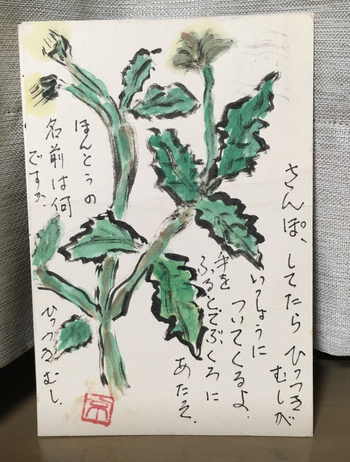 さんぽ、してたら ひっつき
むしが
いっしょうに
ついてくるよ.
手を
ふるとてぶくろに
ほんとうの
名前は何
ですか
ひっつきむし.